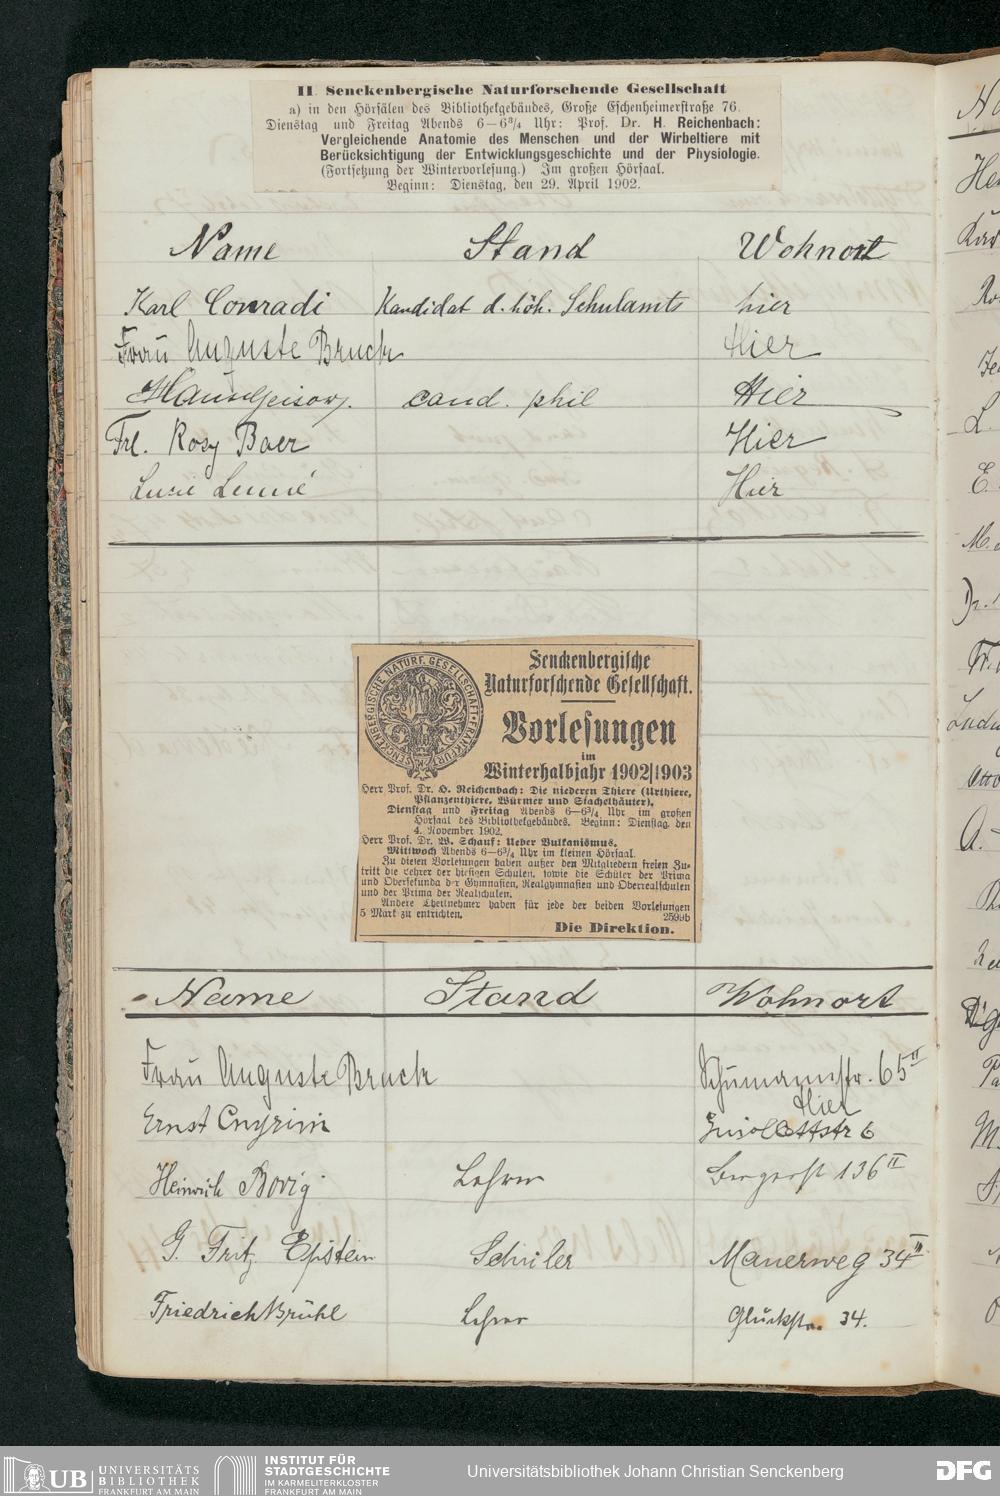 II. Senckenbergische Naturforschende Gesellschaft
a) in den Hörsälen des Bibliothekgebäudes, Große Eschenheimerstraße 76.
Dienstag und Freitag Abends 6—6¾ Uhr: Prof. Dr. H. Reichenbach:
Vergleichende Anatomie des Menschen und der Wirbeltiere mit
Berücksichtigung der Entwicklungsgeschichte und der Physiologie.
(Fortsetzung der Wintervorlesung.) Im großen Hörsaal.
Beginn: Dienstag, den 29. April 1902.
Name Stand Wohnort
Karl Conradi Kandidat d. höh. Schulamts hier
Frau Auguste Bruck Hier
cand. phil Hier
Frl. Rosy Baer Hier
Lucie Hier
SENCKENBERGISCHE NATURF. GESELLSCHAFT · FRANKFURT A/M
Senckenbergische
Naturforschende Gesellschaft.
Vorlesungen
im
Winterhalbjahr 1902/1903
Herr Prof. Dr. H. Reichenbach: Die niederen Thiere (Urthiere,
Pflanzenthiere, Würmer und Stachelhäuter).
Dienstag und Freitag Abends 6—6¾ Uhr im großen
Hörsaal des Bibliothekgebäudes. Beginn: Dienstag, den
4. November 1902.
Herr Prof. Dr. W. Schauf: Ueber Vulkanismus.
Mittwoch Abends 6—6¾ Uhr im kleinen Hörsaal.
Zu diesen Vorlesungen haben außer den Mitgliedern freien Zu-
tritt die Lehrer der hiesigen Schulen, sowie die Schüler der Prima
und Obersekunda der Gymnasien, Realgymnasien und Oberrealschulen
und der Prima der Realschulen.
Andere Theilnehmer haben für jede der beiden Vorlesungen
5 Mark zu entrichten. 2599b
Die Direktion.
Name Stand Wohnort
Frau Auguste Bruck Schumannstr. 65 II
Hier
Ernst Cnyrim 6
Heinrich Borig Lehrer Bergerst 136 II
G. Fritz Epstein Schüler Mauerweg 34 II
Friedrich Brühl Lehrer Glückstr. 34.
UB UNIVERSITÄTS
BIBLIOTHEK
FRANKFURT AM MAIN
INSTITUT FÜR
STADTGESCHICHTE
IM KARMELITERKLOSTER
FRANKFURT AM MAIN
Universitätsbibliothek Johann Christian Senckenberg
DFG